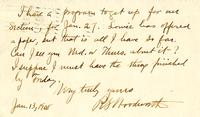 I have a program to get up for our
section, for Jan. 27. Lowie has offered
a paper, but that is all I have so far.
Can I see you Wed. or Thurs. about it?
I suppose I must have the thing finished
by Friday.
Very truly yours
Jan. 13, 1908 R S Woodworth